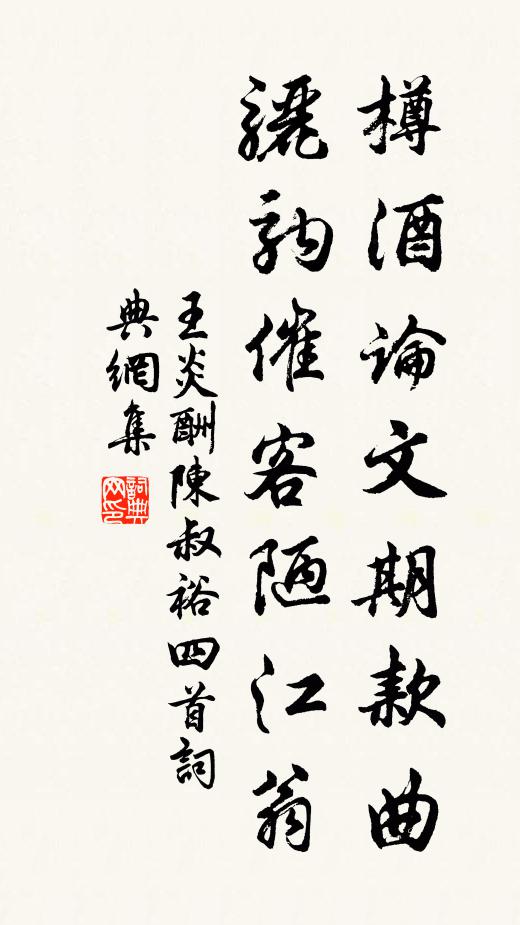 樽酒論文期款曲
驪駒催客陋江翁
王炎酬陳叔裕四首詞
典網集
詞典
网印